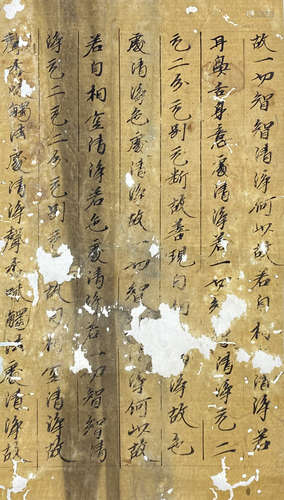 故一切智智清淨何以故若自相清淨若
耳鼻舌身意處清淨若一切清淨无二
无二分无別无斷故善現自淨故色
處清淨色處清淨故一切智淨何以故
若自相空清淨若色處清淨若一切智智清
淨无二无二分无別无故自相空清淨故
聲香味觸法處清淨聲香味觸法處清淨故